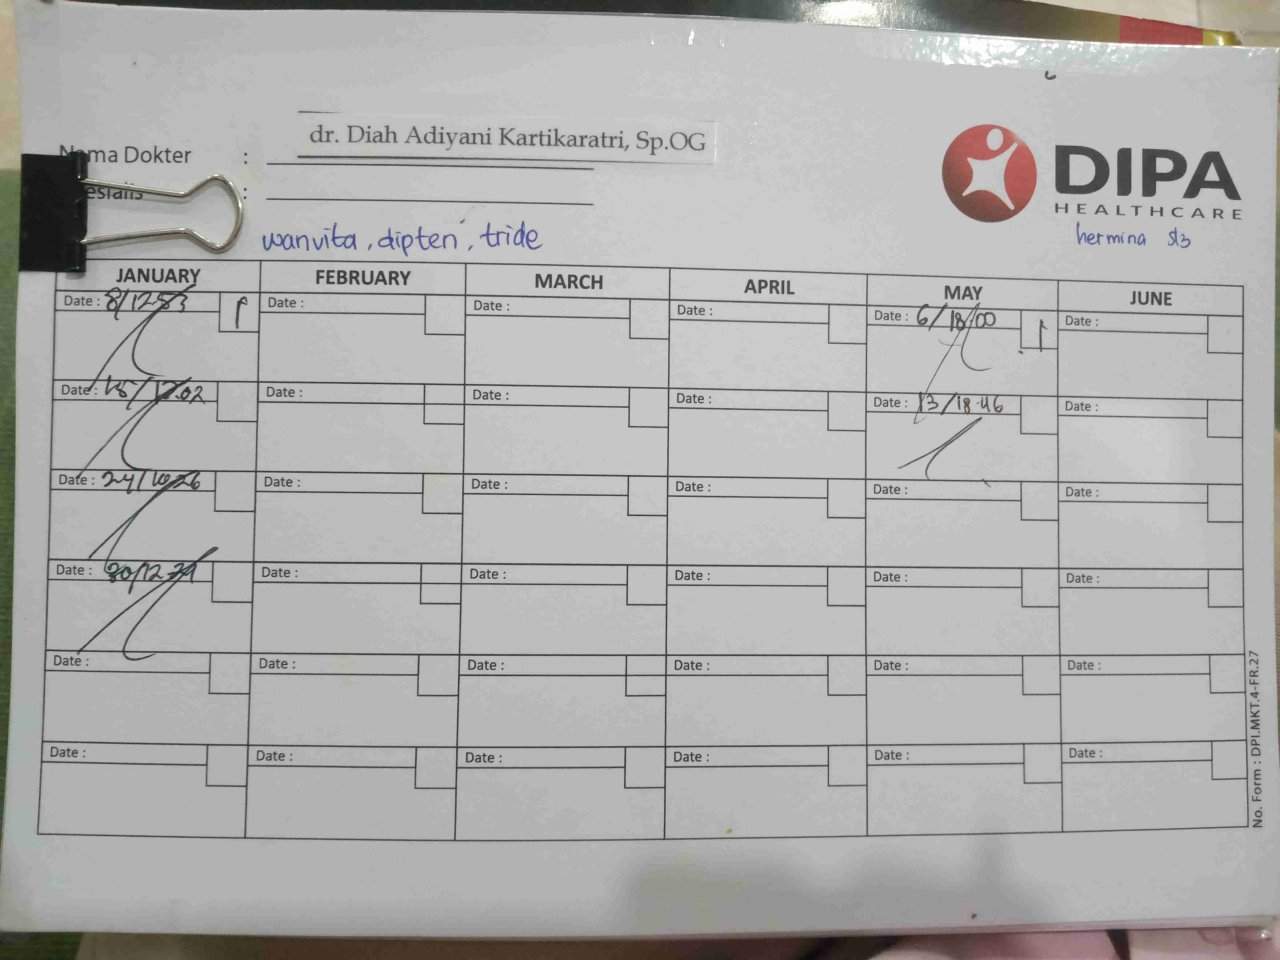 dr. Diah Adiyani Kartikaratri, Sp.OG
Nama Dokter :
esialis :
DIPA
HEALTHCARE
hermina
wanvita, dipten, tride
JANUARY FEBRUARY MARCH APRIL MAY JUNE
Date : 8/12.53 Date : Date : Date : Date : 6/18.00 Date :
Date : 15/17.02 Date : Date : Date : Date : 13/18.46 Date :
Date : 24/ Date : Date : Date : Date : Date :
Date : 30/12. Date : Date : Date : Date : Date :
Date : Date : Date : Date : Date : Date :
Date : Date : Date : Date : Date : Date :
No. Form : DPI.MKT.4-FR.27